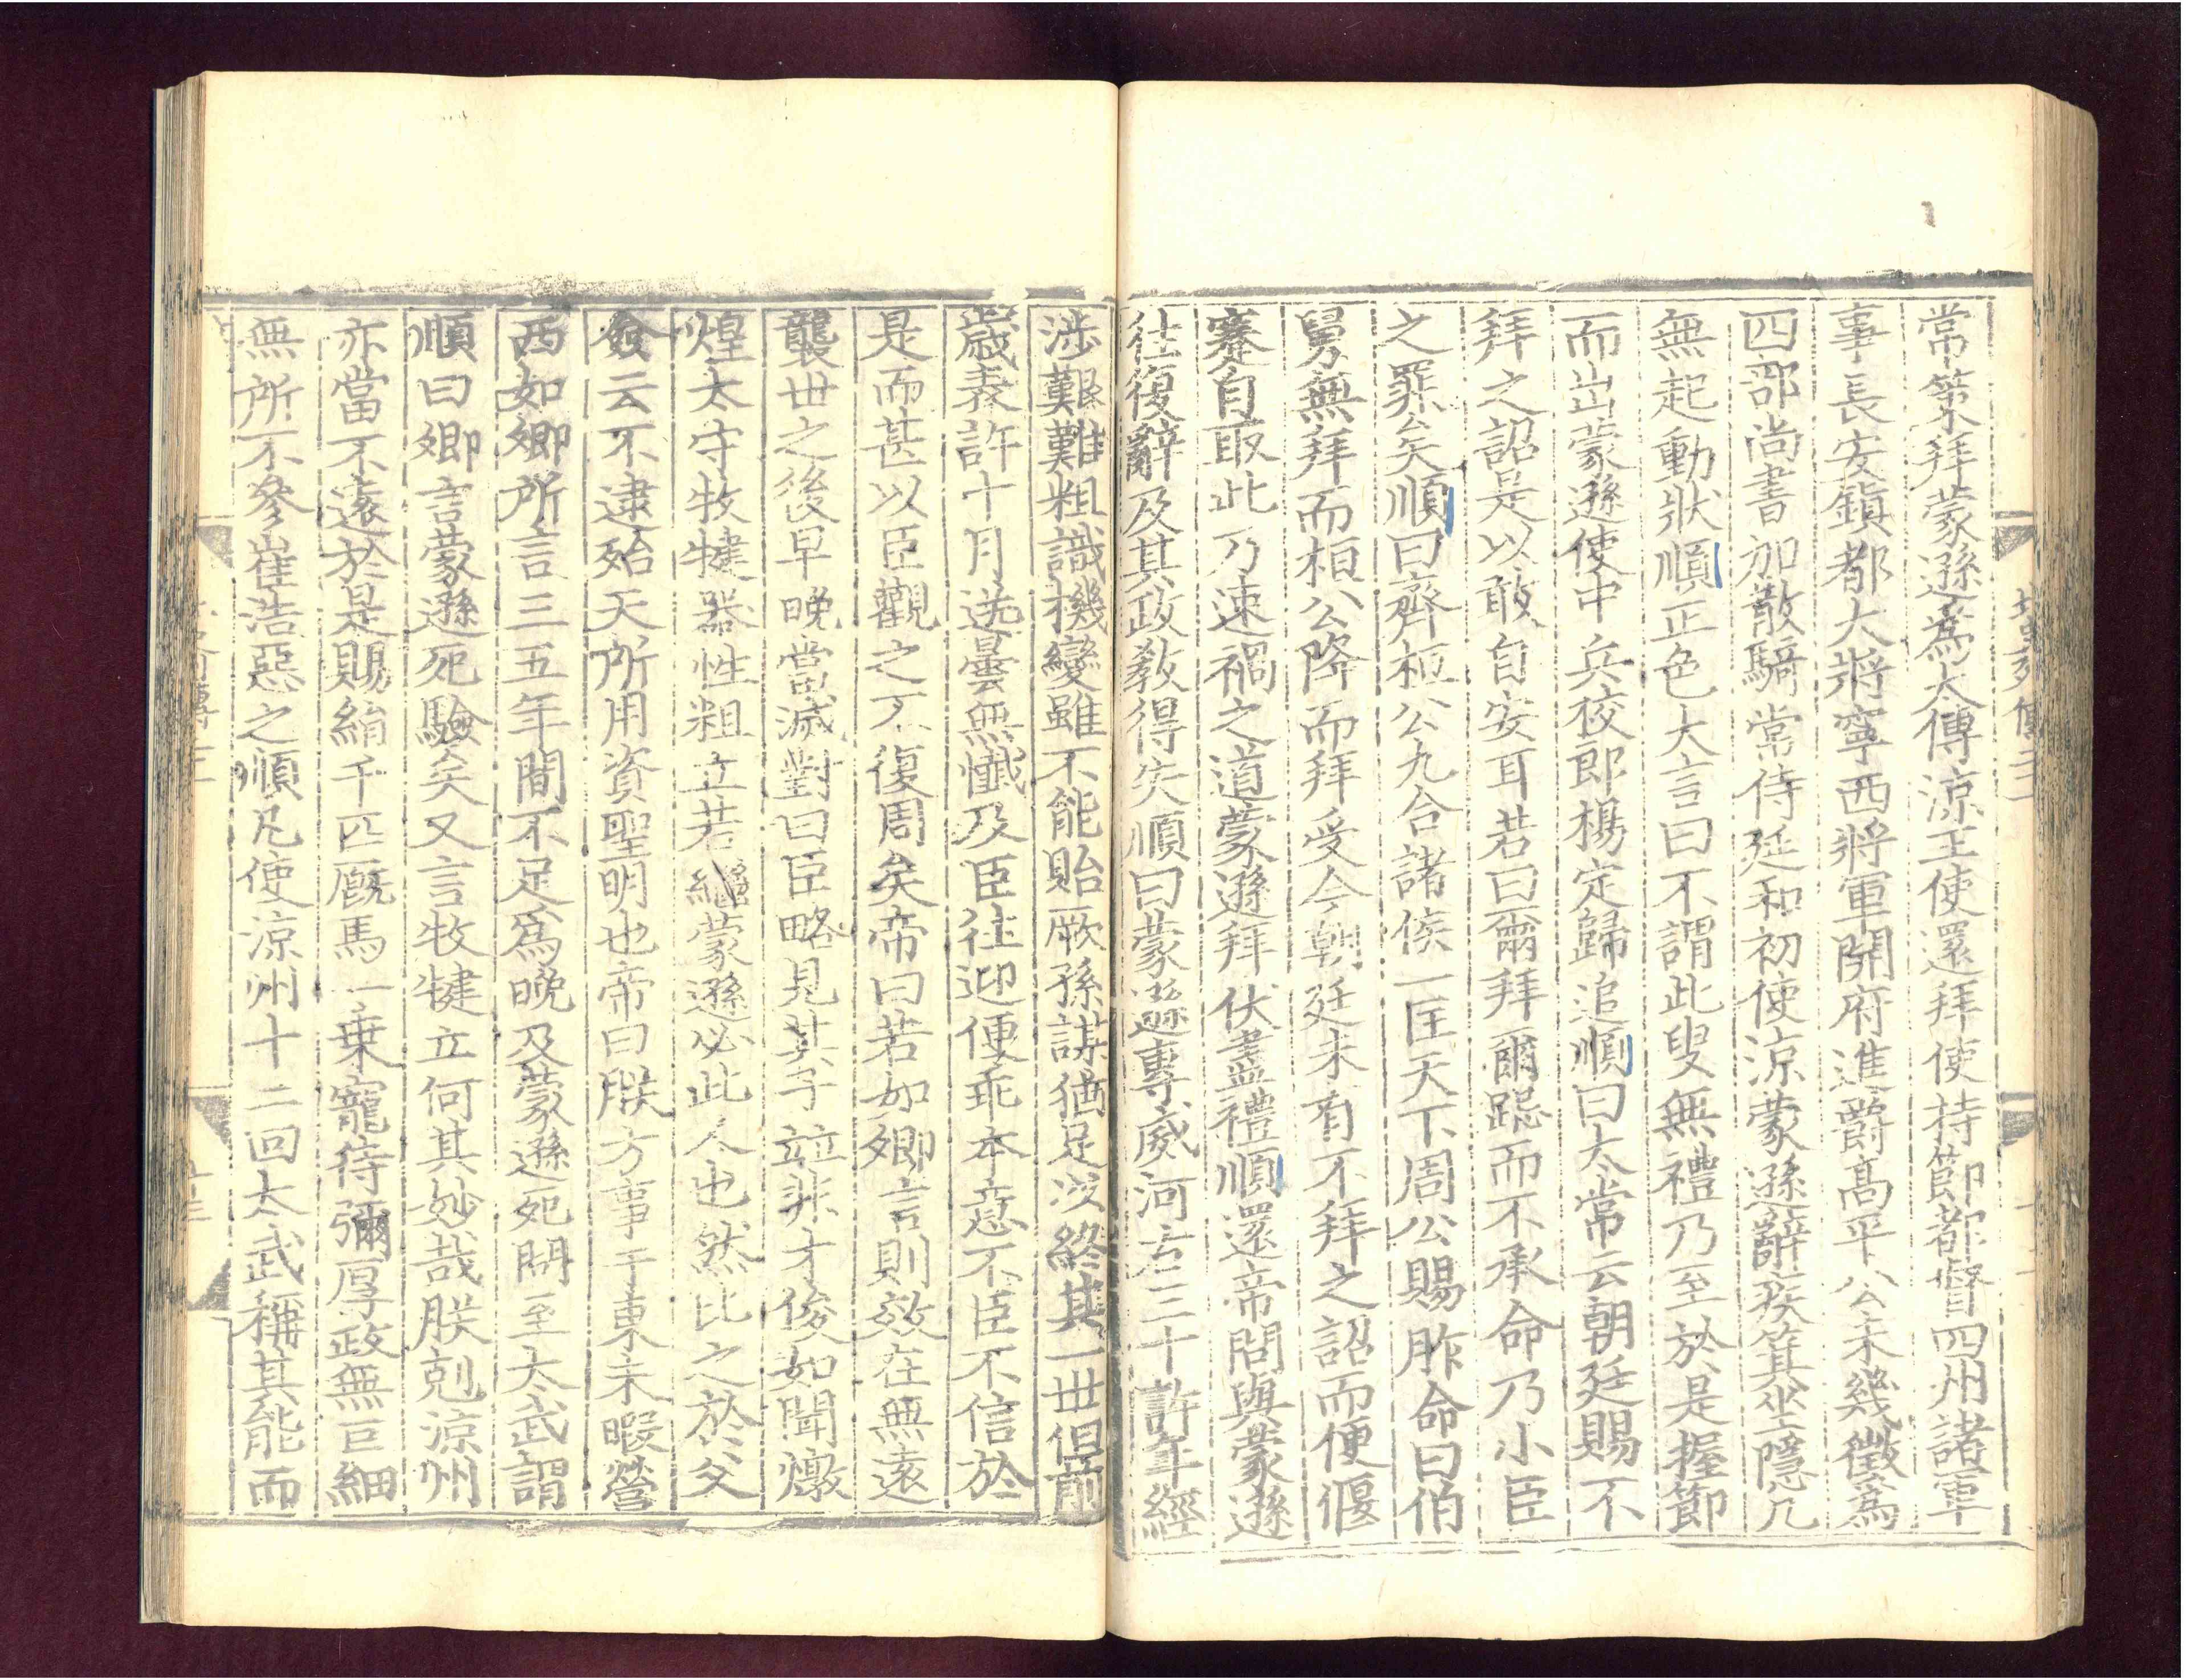 常策拜蒙遜爲太傅涼王使還拜使持節都督四州諸軍
事長安鎮都大將寧西將軍開府進爵高平公未幾徵爲
四部尚書加散騎常侍延和初使涼蒙遜辭疾箕坐隱几
無起動狀順正色大言曰不謂此叟無禮乃至於是握節
而出蒙遜使中兵校郎楊定歸追順曰太常云朝廷賜不
拜之詔是以敢自安耳若曰爾拜爾跽而不承命乃小臣
之罪矣順曰齊桓公九合諸侯一匡天下周公賜胙命曰伯
舅無拜而桓公降而拜受今朝廷未有不拜之詔而便偃
蹇自取此乃速禍之道蒙遜拜伏盡禮順還帝問與蒙遜
往復辭及其政教得失順曰蒙遜專威河右三十許年經
涉艱難粗識機變雖不能貽厥孫謀猶足以終其一世但前
歲表許十月送曇無懺及臣往迎便乖本意不臣不信於
是而甚以臣觀之不復周矣帝曰若如卿言則效在無遠
襲世之後早晚當滅對曰臣略見其子竝非才俊如聞燉
煌太守牧犍器性粗立若繼蒙遜必此人也然比之於父
僉云不逮殆天所用資聖明也帝曰朕方事于東未暇營
西如卿所言三五年間不足爲晚及蒙遜死問至太武謂
順曰卿言蒙遜死驗矣又言牧犍立何其妙哉朕剋涼州
亦當不遠於是賜絹千匹厩馬一乗寵待彌厚政無巨細
無所不參崔浩惡之順凡使涼州十二回太武稱其能而